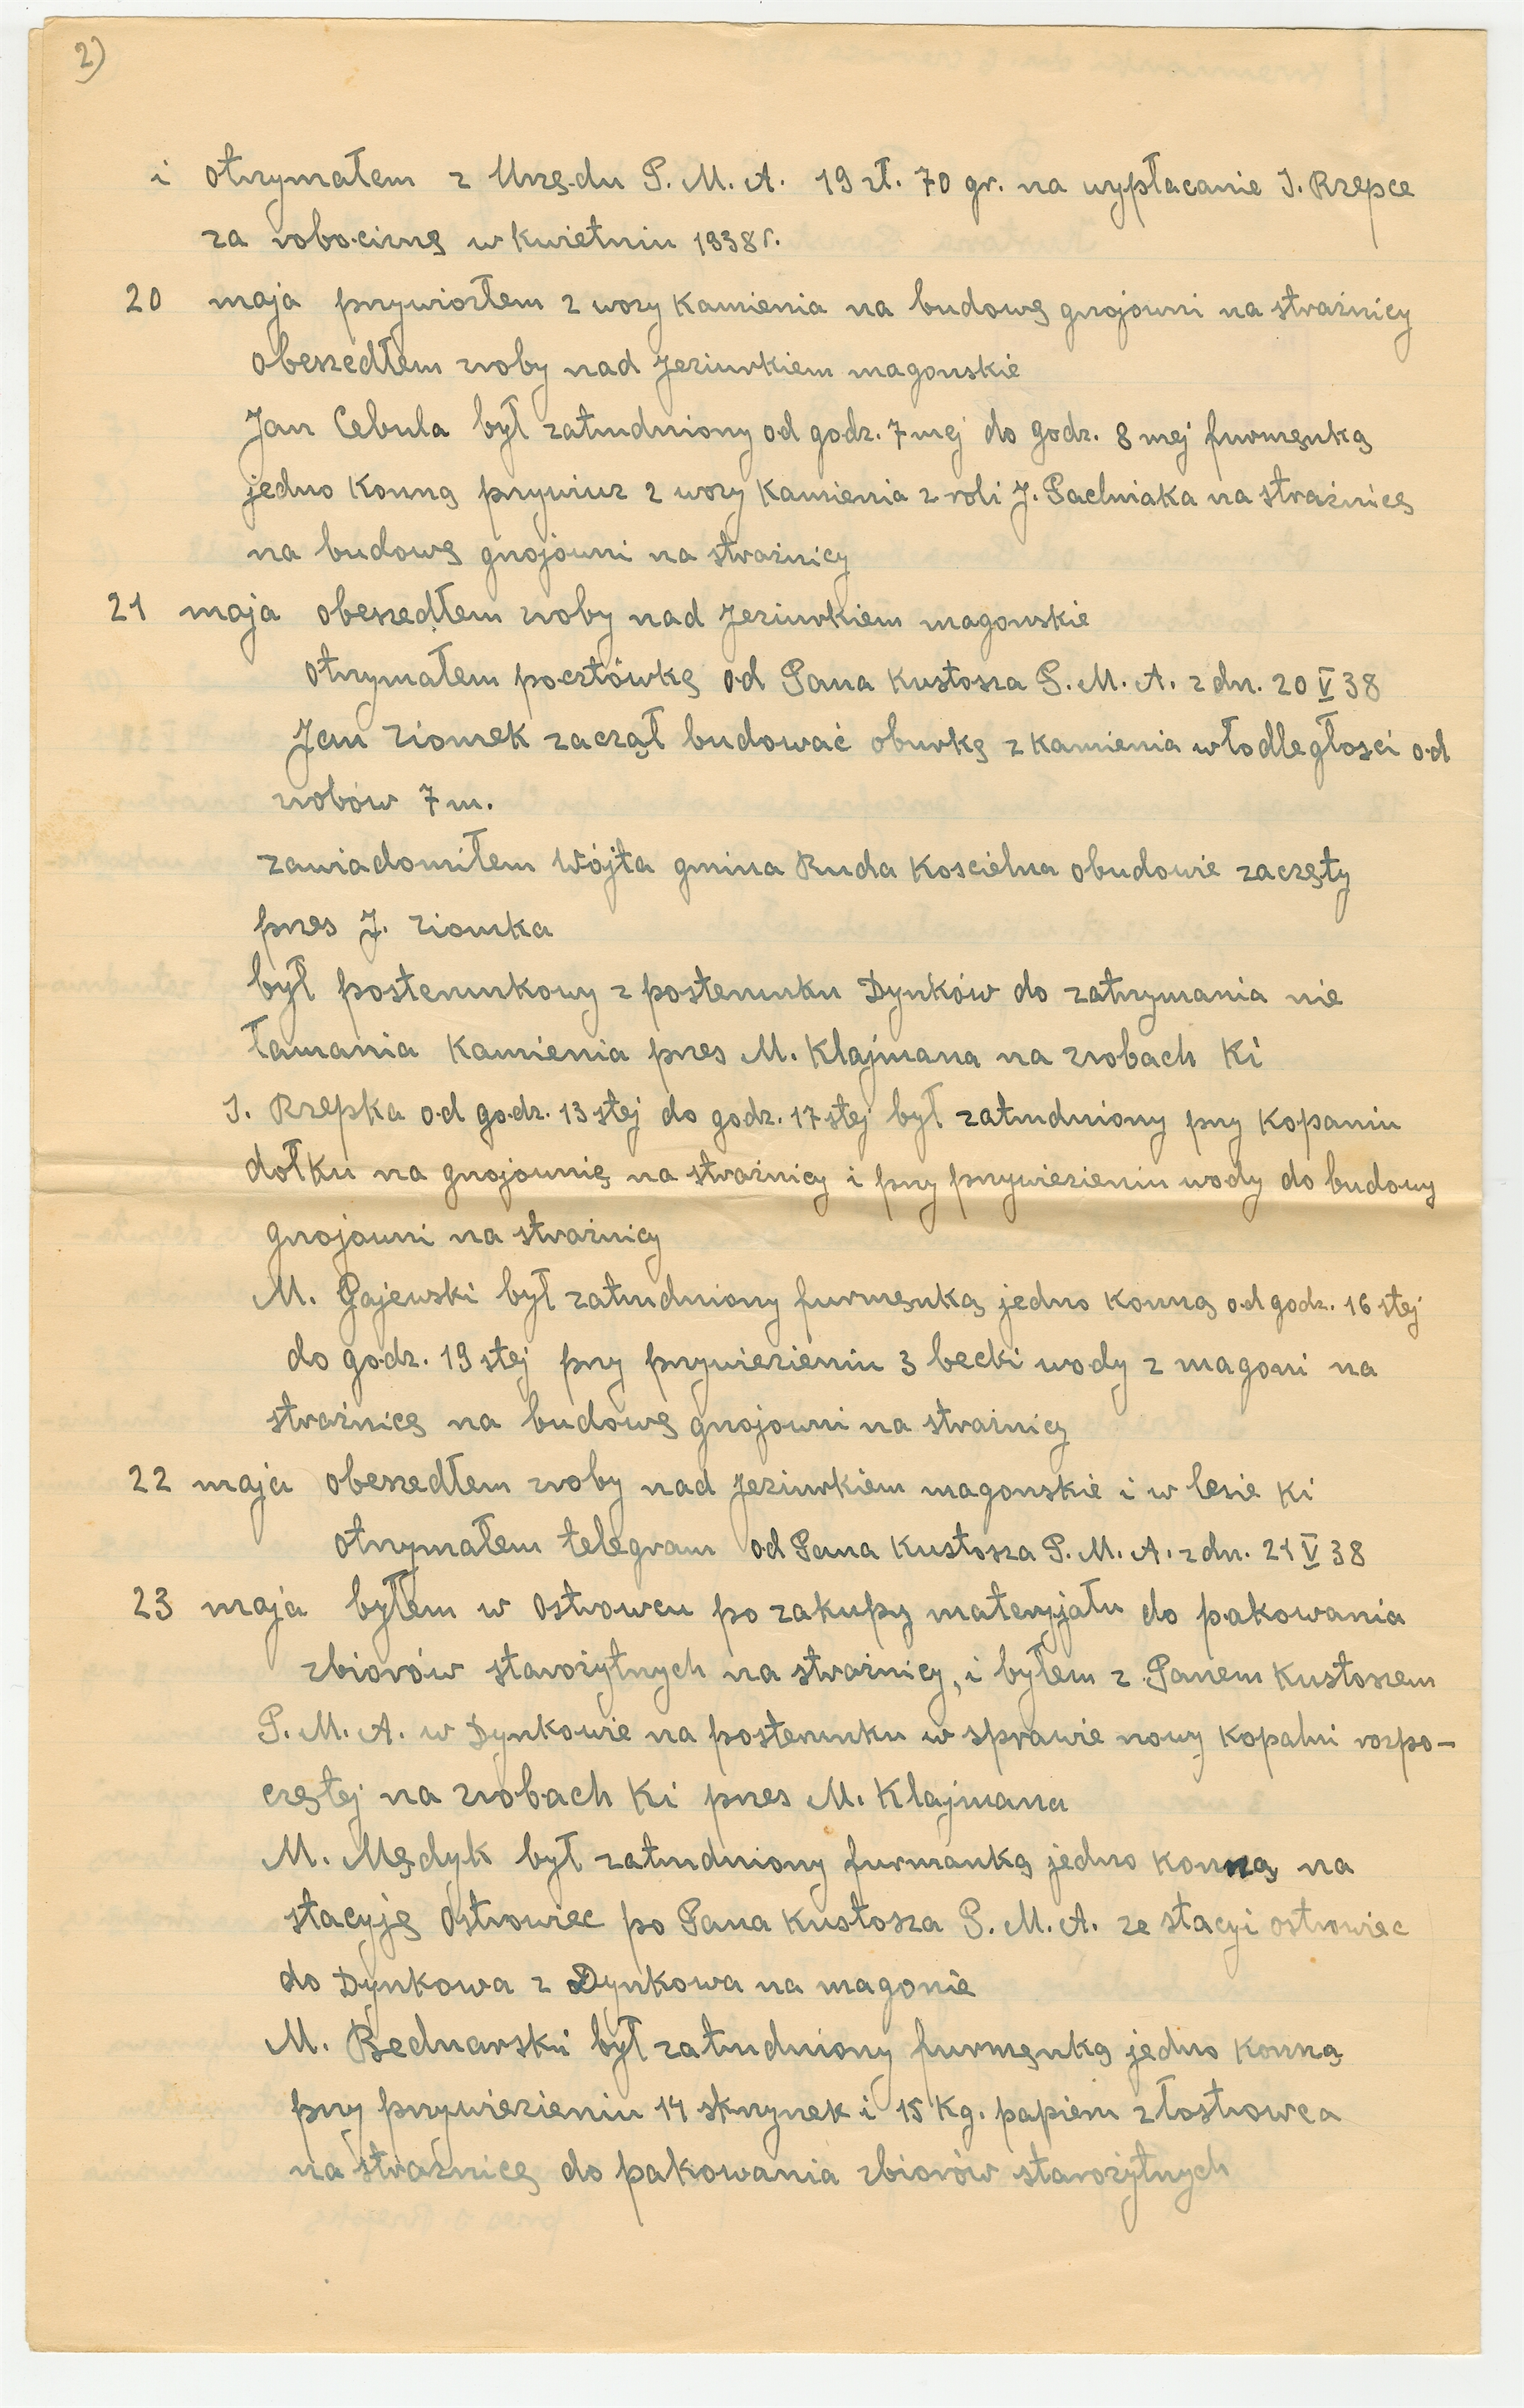 2)
i otrzymałem z Urzędu P. M. A. 19 zł. 70 gr. na wypłacanie J. Rzepce
za robociznę w kwietniu 1938 r.
20 maja przywiozłem 2 wozy kamienia na budowę gnojowni na strażnicy
obeszedłem zroby nad Jeziurkiem magonskie
Jan Cebula był zatrudniony od godz. 7 mej do godz. 8 mej furmęnką
jedno konną przywiuz 2 wozy kamienia z roli J. Pachniaka na strażnicę
na budowę gnojowni na strażnicy
21 maja obeszedłem zroby nad Jeziurkiem magonskie
otrzymałem pocztówkę od Pana Kustosza P. M. A. z dn. 20 V 38
Jan Ziomek zaczął budować oburkę z kamienia włodległosci od
zrobów 7 m.
zawiadomiłem Wójta gmina Ruda Koscielna obudowie zaczęty
przes J. Ziomka
był posterunkowy z posterunku Dynków do zatrzymania nie
łamania kamienia przes M. Klajmana na zrobach Ki
J. Rzepka od godz. 13 stej do godz. 17 stej był zatrudniony przy kopaniu
dołku na gnojownię na strażnicy i przy przywiezieniu wody do budowy
gnojowni na strażnicy
M. Gajewski był zatrudniony furmęnką jedno konną od godz. 16 stej
do godz. 19 stej przy przywiezieniu 3 becki wody z magoni na
strażnicę na budowę gnojowni na strażnicy
22 maja obeszedłem zroby nad Jeziurkiem magonskie i w lesie Ki
otrzymałem telegram od Pana Kustosza P. M. A. z dn. 21 V 38
23 maja byłem w Ostrowcu po zakupy materyjału do pakowania
zbiorów starożytnych na strażnicy, i byłem z Panem Kustoszem
P. M. A. w Dynkowie na posterunku w sprawie nowy kopalni rozpo-
czętej na zrobach Ki przes M. Klajmana
M. Mędyk był zatrudniony furmanką jedno konną na
stacyję Ostrowiec po Pana Kustosza P. M. A. ze stacyi ostrowiec
do Dynkowa z Dynkowa na magonie
M. Bednarski był zatrudniony furmęnką jedno konną
przy przywiezieniu 14 skrzynek i 15 Kg. papieru złostrowca
na strażnicę do pakowania zbiorów starożytnych